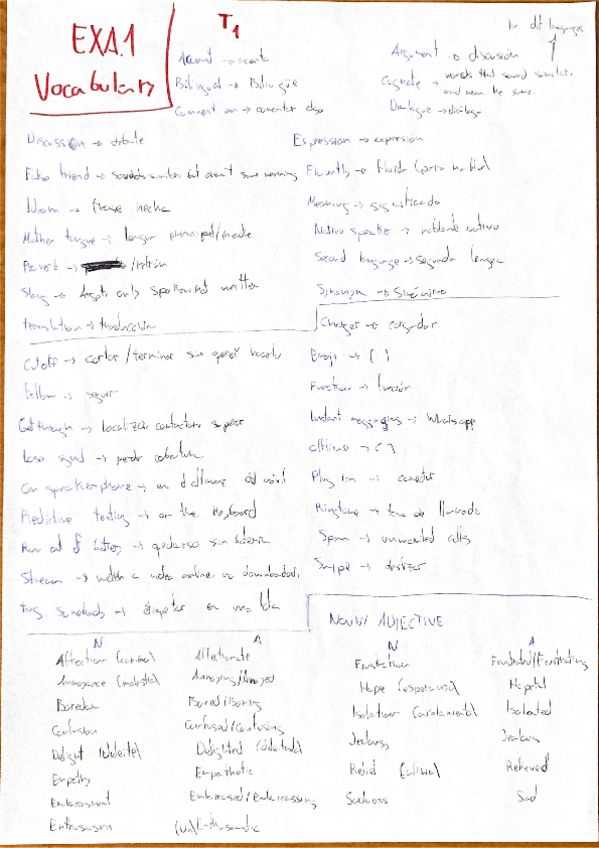 EXA.1
Vocabulary
T1
Accent → acento
Bilingual → Bilingüe
Comment on → comentar algo
in dif languages
Argument → discusión
Cognate → words that sound similar
and mean the same.
Dialogue → diálogo
Discussion → debate
False friend → sounds similar but aren't same meaning
Idiom → frase hecha
Mother tongue → lengua principal/madre
Proverb → /refrán
Slang → Argot only spoken not written
translation → traducción
Expression → expresión
Fluently → fluido
Meaning → significado
Native speaker → hablante nativo
Second language → segunda lengua
Synonym → Sinónimo
Cut off → cortar/terminar sin querer hacerlo
follow → seguir
Get through → localizar contactar superar
Lose signal → perder cobertura
On speakerphone → en altavoz del móvil
Predictive texting → on the keyboard
Run out of battery → quedarse sin batería
Stream → watch a video online, no download.
tag somebody → etiquetar en una foto
Charger → cargador
Emoji → ( )
Function → función
Instant messaging → Whatsapp
offline → ( )
Plug in → conectar
Ringtone → tono de llamada
Spam → unwanted calls
Swipe → deslizar
NOUN/ADJECTIVE
N A
Affection (cariño) Affectionate
Annoyance (molestia) Annoying/Annoyed
Boredom Bored/Boring
Confusion Confused/Confusing
Delight (deleite) Delighted
Empathy Empathetic
Embarrassment Embarrassed/Embarrassing
Enthusiasm (Un)Enthusiastic
N A
Frustration Frustrated/Frustrating
Hope (esperanza) Hopeful
Isolation (aislamiento) Isolated
Jealousy Jealous
Relief (alivio) Relieved
Sadness Sad